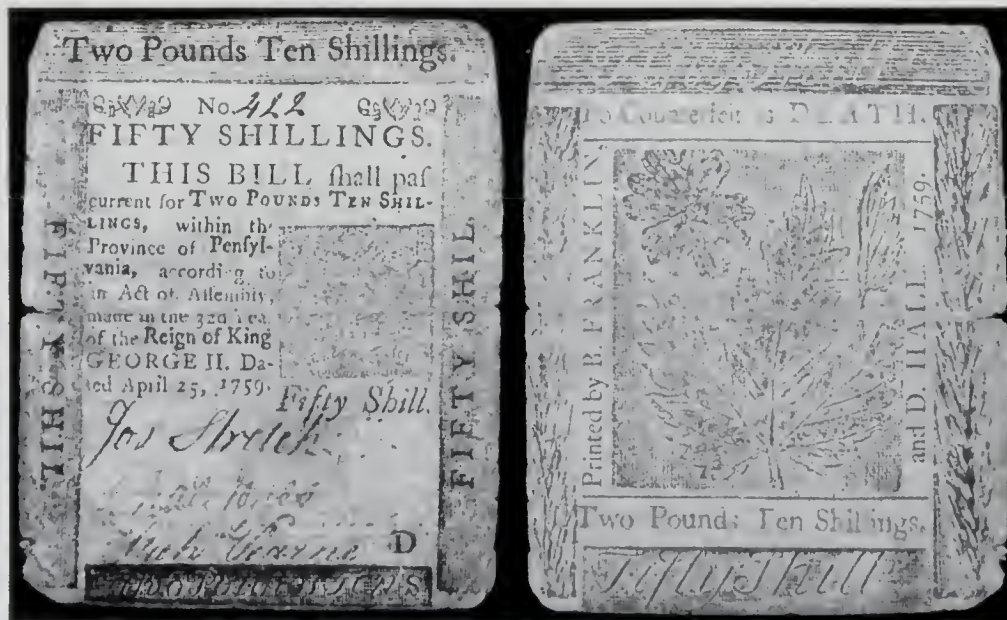 Two Pounds Ten Shillings.
No. 422
FIFTY SHILLINGS.
THIS BILL ſhall paſ
current for TWO POUNDS TEN SHIL-
LINGS, within th
Province of Penſyl-
vania, according to
an Act of Aſſembly,
made in the 32d Yea
of the Reign of King
GEORGE II. Da-
ted April 25, 1759.
Fifty Shill.
FIFTY SHIL
FIFTY SHIL.
Jos Stretch
D
To Counterfeit is DEATH.
Printed by B. FRANKLIN
and D HALL 1759.
Two Pounds Ten Shillings.
Fifty Shill